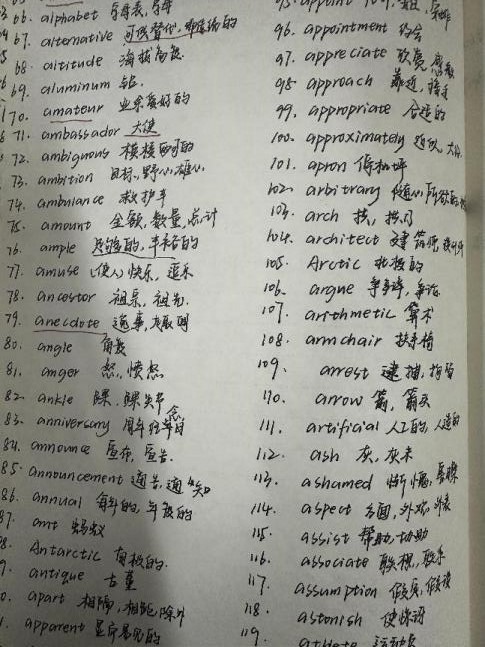 66. alphabet 字母表,字母
67. alternative 可供替代,
68. altitude 海拔高度
69. aluminum 铝
70. amateur 业余爱好的
71. ambassador 大使
72. ambiguous 模棱两可的
73. ambition 目标,野心,雄心
74. ambulance 救护车
75. amount 金额,数量,总计
76. ample 足够的,丰裕的
77. amuse (使人)快乐,逗乐
78. ancestor 祖宗,祖先
79. anecdote 逸事,趣闻
80. angle 角度
81. anger 怒,愤怒
82. ankle 踝,踝关节
83. anniversary 周年纪念日
84. announce 宣布,宣告.
85. announcement 通告,通知
86. annual 每年的,年度的
87. ant 蚂蚁
88. Antarctic 南极的
antique 古董
apart 相隔,相距,除外
apparent 显而易见的
95. appoint
96. appointment 约会
97. appreciate 欣赏,感激
98 approach 靠近,接近
99. appropriate 合适的
100. approximately 近似,大约
101. apron
102. arbitrary 随心所欲的
103. arch 拱,拱门
104. architect 建筑师,设计师
105. Arctic 北极的
106. argue 争辩,争论
107. arithmetic 算术
108. armchair 扶手椅
109. arrest 逮捕,拘留
110. arrow 箭,箭头
111. artificial 人工的,人造的
112. ash 灰,灰末
113. ashamed 惭愧,羞臊
114. aspect 方面,外观,外表
115. assist 帮助,协助
116. associate 联想,联系
117. assumption 假定,假设
118. astonish 使惊讶
119. athlete 运动员